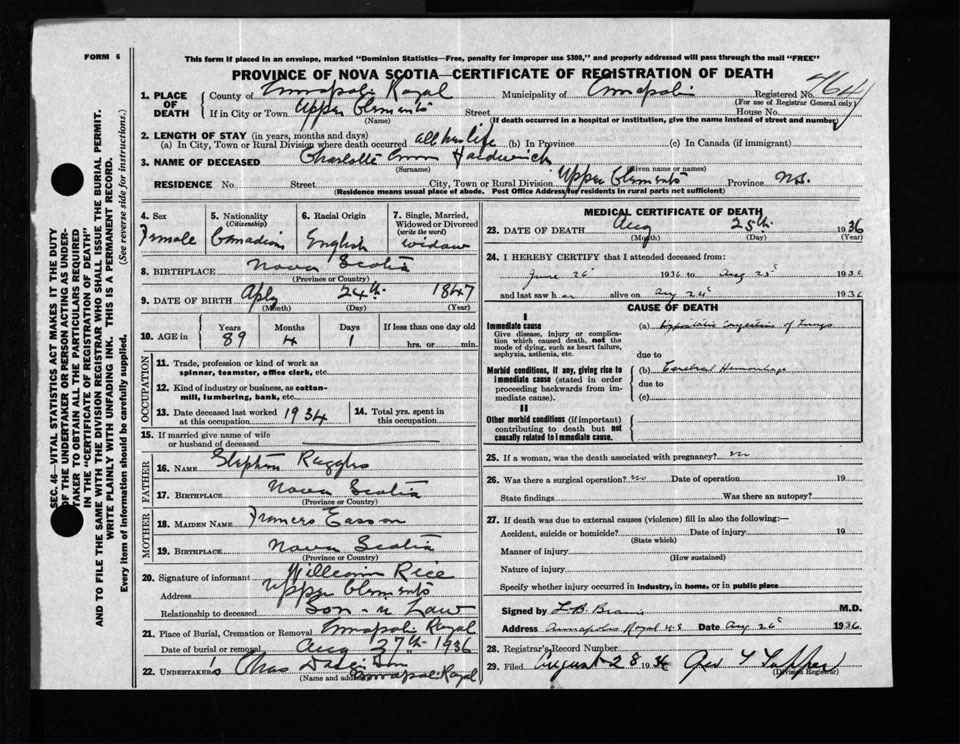 FORM 6
This form if placed in an envelope, marked "Dominion Statistics—Free, penalty for improper use $300," and properly addressed will pass through the mail "FREE"
PROVINCE OF NOVA SCOTIA—CERTIFICATE OF REGISTRATION OF DEATH
1. PLACE OF DEATH County of Annapolis Royal Municipality of Annapolis Registered No. 4641
(For use of Registrar General only)
If in City or Town Upper Clements Street House No.
(Name) (If death occurred in a hospital or institution, give the name instead of street and number)
2. LENGTH OF STAY (in years, months and days)
(a) In City, Town or Rural Division where death occurred all her life (b) In Province (c) In Canada (if immigrant)
3. NAME OF DECEASED Charlotte Ann Hardwick
(Surname) (Given name or names)
RESIDENCE No. Street City, Town or Rural Division Upper Clements Province N.S.
(Residence means usual place of abode. Post Office Address for residents in rural parts not sufficient)
4. Sex Female
5. Nationality (Citizenship) Canadian
6. Racial Origin English
7. Single, Married, Widowed or Divorced (write the word) widow
8. BIRTHPLACE Nova Scotia
(Province or Country)
9. DATE OF BIRTH 24th 1847
(Month) (Day) (Year)
10. AGE in Years 89 Months 4 Days 1 If less than one day old hrs. or min.
OCCUPATION
11. Trade, profession or kind of work as spinner, teamster, office clerk, etc.
12. Kind of industry or business, as cotton-mill, lumbering, bank, etc.
13. Date deceased last worked at this occupation 1934
14. Total yrs. spent in this occupation
15. If married give name of wife or husband of deceased
FATHER
16. NAME Stephen Ruggles
17. BIRTHPLACE Nova Scotia
(Province or Country)
MOTHER
18. MAIDEN NAME Frances Easson
19. BIRTHPLACE Nova Scotia
(Province or Country)
20. Signature of informant William Rice
Address Upper Clements
Relationship to deceased Son-n Law
21. Place of Burial, Cremation or Removal Annapolis Royal
Date of burial or removal Aug 27th 1936
22. UNDERTAKER'S Chas
(Name and address) Annapolis Royal
MEDICAL CERTIFICATE OF DEATH
23. DATE OF DEATH Aug 25th 1936
(Month) (Day) (Year)
24. I HEREBY CERTIFY that I attended deceased from:
June 26 1936 to Aug 25 1936
and last saw her alive on Aug 24 1936
CAUSE OF DEATH
I
Immediate cause
Give disease, injury or complication which caused death, not the mode of dying, such as heart failure, asphyxia, asthenia, etc.
(a) Hypostatic Congestion of Lungs
due to
Morbid conditions, if any, giving rise to immediate cause (stated in order proceeding backwards from immediate cause).
(b) Cerebral Hemorrhage
due to
(c)
II
Other morbid conditions (if important) contributing to death but not causally related to immediate cause.
25. If a woman, was the death associated with pregnancy? no
26. Was there a surgical operation? no Date of operation 19
State findings Was there an autopsy?
27. If death was due to external causes (violence) fill in also the following:—
Accident, suicide or homicide? Date of injury 19
(State which)
Manner of injury
(How sustained)
Nature of injury
Specify whether injury occurred in industry, in home, or in public place
Signed by L B M.D.
Address Annapolis Royal N.S Date Aug 26 1936
28. Registrar's Record Number
29. Filed August 28 1936 Geo Y Tupper
(Division Registrar)
SEC. 46—VITAL STATISTICS ACT MAKES IT THE DUTY
OF THE UNDERTAKER OR PERSON ACTING AS UNDER-
TAKER TO OBTAIN ALL THE PARTICULARS REQUIRED
IN THE "CERTIFICATE OF REGISTRATION OF DEATH"
AND TO FILE THE SAME WITH THE DIVISION REGISTRAR WHO SHALL ISSUE THE BURIAL PERMIT.
WRITE PLAINLY WITH UNFADING INK. THIS IS A PERMANENT RECORD.
Every item of information should be carefully supplied. (See reverse side for instructions.)